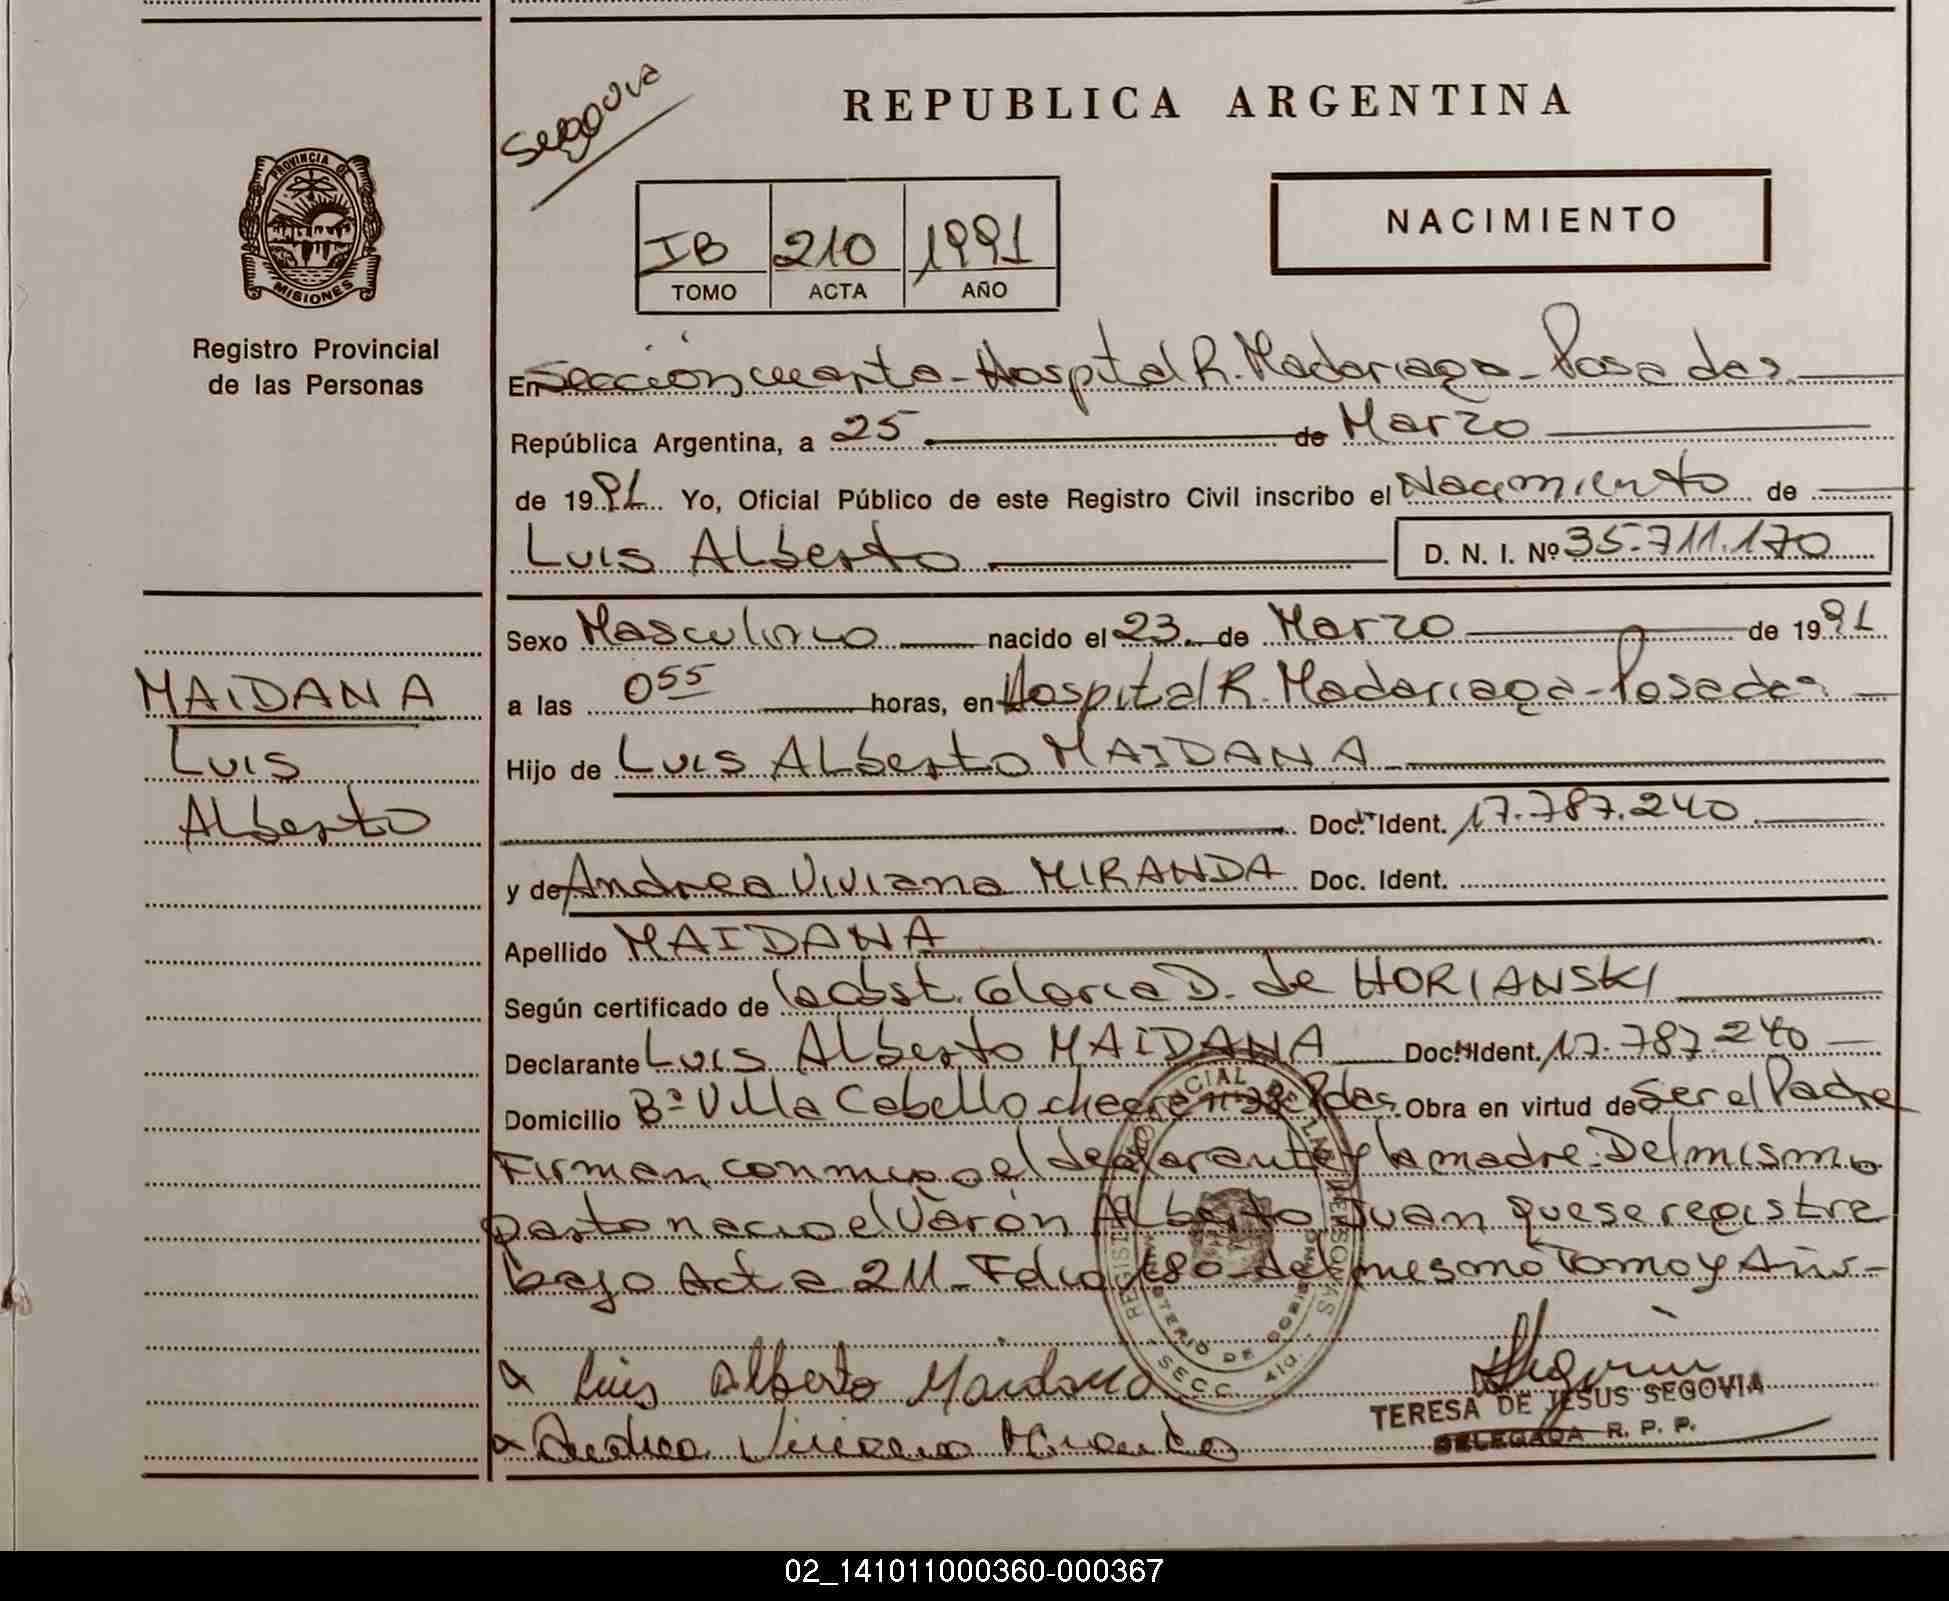 Segovia
REPUBLICA ARGENTINA
PROVINCIA DE
MISIONES
Registro Provincial
de las Personas
IB 210 1991
TOMO ACTA AÑO
NACIMIENTO
En Sección cuarta - Hospital R. Madariaga - Posadas.
República Argentina, a 25 de Marzo
de 1991 Yo, Oficial Público de este Registro Civil inscribo el Nacimiento de
Luis Alberto D. N. I. Nº 35.711.170
Sexo Masculino nacido el 23 de Marzo de 1991
a las 0 55 horas, en Hospital R. Madariaga - Posadas
Hijo de Luis Alberto MAIDANA
Doc. Ident. 17.787.240
y de Andrea Viviana MIRANDA Doc. Ident.
Apellido MAIDANA
Según certificado de la Obst. Gloria D. de HORIANSKI
Declarante Luis Alberto MAIDANA Doc. Ident. 17.787.240
Domicilio Bº Villa Cabello Pdas. Obra en virtud de Ser el Padre
Firman conmigo el declarante y la madre. Del mismo
parto nacio el Varón Alberto Juan que se registra
bajo Acta 211 - Folio 180 - del mismo Tomo y Año -
MAIDANA
Luis
Alberto
Luis Alberto Maidana
Andrea Viviana Miranda
TERESA DE JESUS SEGOVIA
DELEGADA R. P. P.
REGISTRO PROVINCIAL DE LAS PERSONAS
MINISTERIO DE GOBIERNO
SECC. 4ta.
02_141011000360-000367